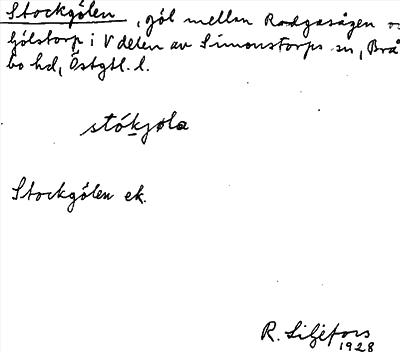 Stockgölen, göl mellan Rodgasågen o
hjölstorp i V delen av Simonstorps sn, Brå
bo hd, Östgtl. l.
stókjøla
Stockgölen ek.
R. Liljefors
1928